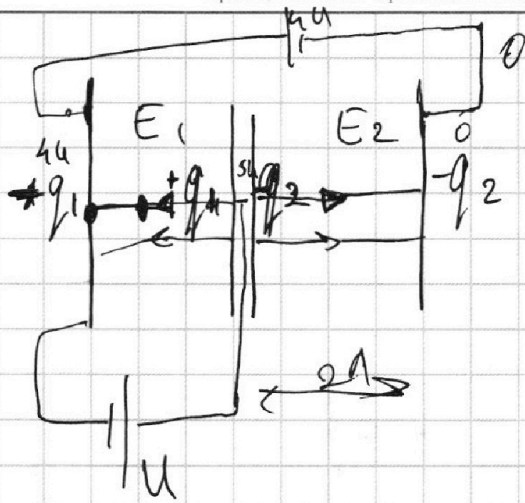 4U
0
E1
E2
0
4U
q1
+
q1
5U
q2
-q2
2
U